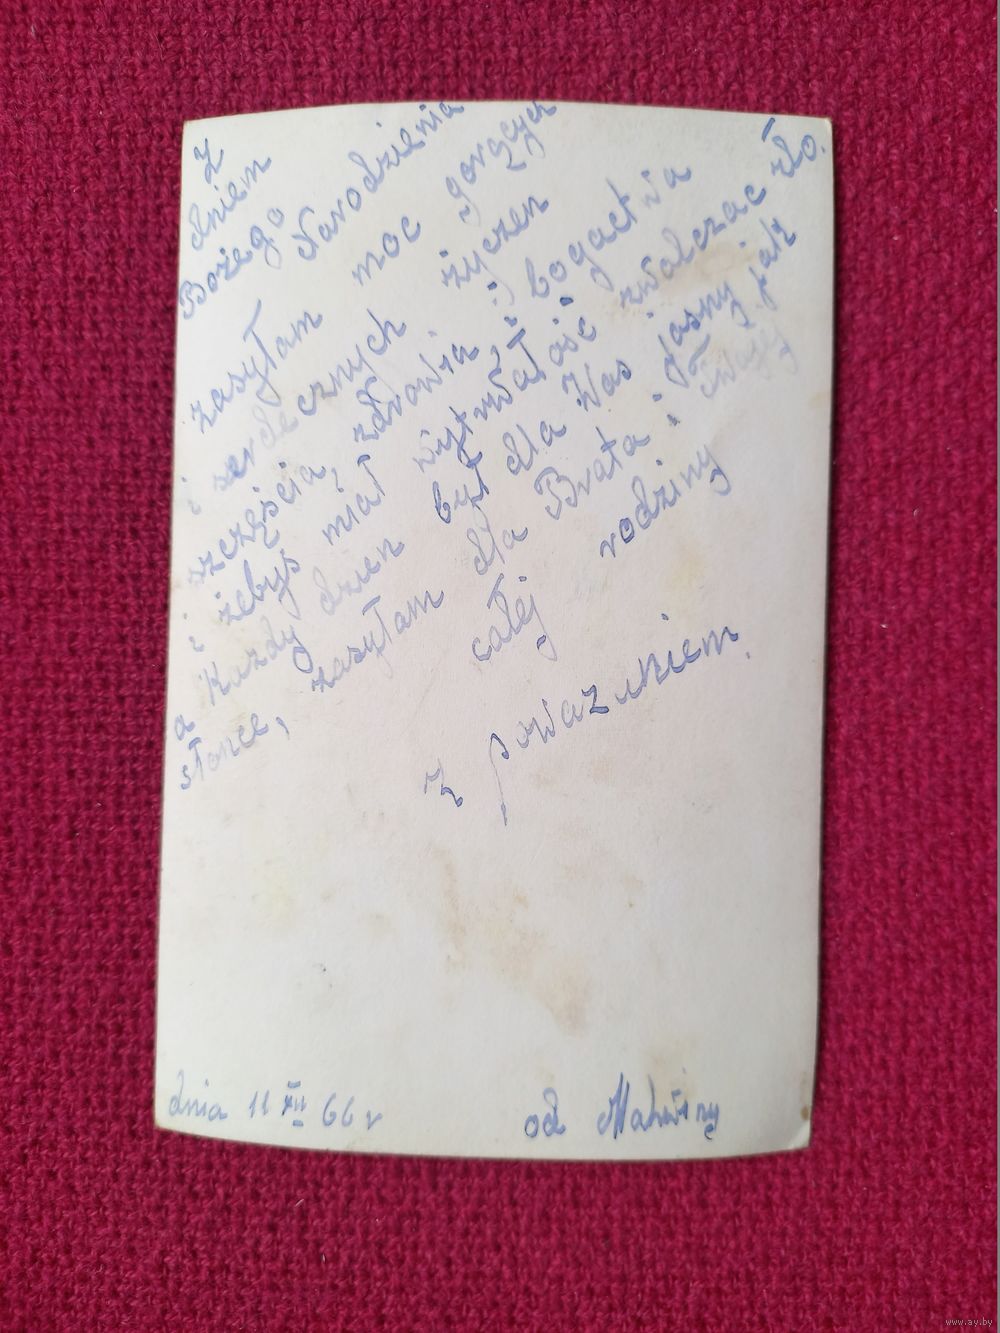 Z
dniem
Bożego Narodzenia
zasyłam moc gorących
i serdecznych życzen
szczęścia, zdrowia i bogactwa
i żebyś miał wytrwałość zwalczac zło.
a Kazdy dzien był dla Was jasny jak
słonce, zasyłam dla Brata i Twojej
całej rodziny
z powazaniem.
dnia 11 XII 66 r
od Malwiny
www.ay.by